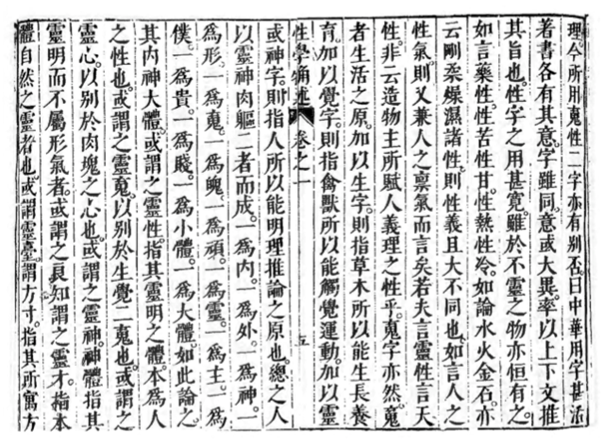 理今所用䰟性二字亦有別否曰中華用字甚活
著書各有其意字雖同意或大異率以上下文推
其旨也性字之用甚寬雖於不靈之物亦恒有之
如言藥性性苦性甘性熱性冷如論水火金石亦
云剛柔燥濕諸性則性義且大不同也如言人之
性氣則又兼人之禀氣而言矣若夫言靈性言天
性非云造物主所賦人義理之性乎䰟字亦然䰟
者生活之原加以生字則指草木所以能生長養
育加以覺字則指禽獸所以能觸覺運動加以靈
性學觕述 卷之一 五
或神字則指人所以能明理推論之原也總之人
以靈神肉軀二者而成一為內一為外一為神一
為形一為䰟一為魄一為頑一為靈一為主一為
僕一為貴一為賤一為小體一為大體如此論之
其內神大體或謂之靈性指其靈明之體本為人
之性也或謂之靈䰟以別於生覺二䰟也或謂之
靈心以別於肉塊之心也或謂之靈神神體指其
靈明而不屬形氣者或謂之良知謂之靈才指本
體自然之靈者也或謂靈臺謂方寸指其所寓方